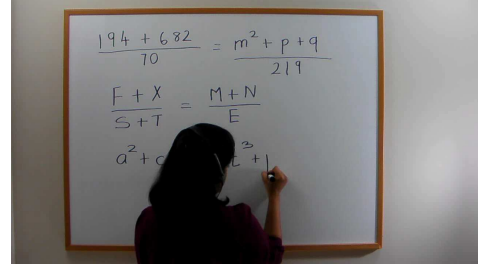 194 + 682 / 70 = m² + p + q / 219
F + X / S + T = M + N / E
a² + c ³ +